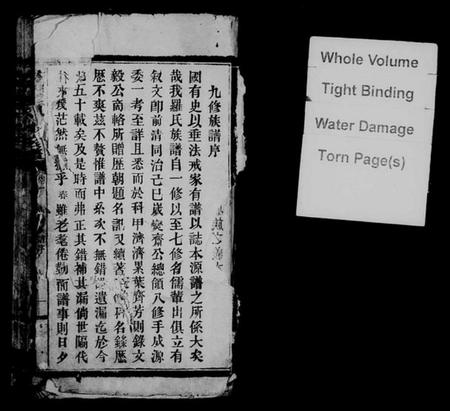 九修族譜序
國有史以垂法戒家有譜以誌本源譜之所係大矣
哉我羅氏族譜自一修以至七修名儒輩出俱立有
叙文即前清同治己巳歲齋公總領八修手成源
委一考至詳且悉而於科甲濟濟果葉齊芳則錄文
毅公商輅所贈歷朝題名記又續著科名錄歷
歷不爽茲不贅惟譜中系次不無錯遺漏迄於今
五十載矣及是時而弗正其錯補其漏倘世隔代
茫然無乎春雖老耄倦勤預譜事則日夕
Whole Volume
Tight Binding
Water Damage
Torn Page(s)